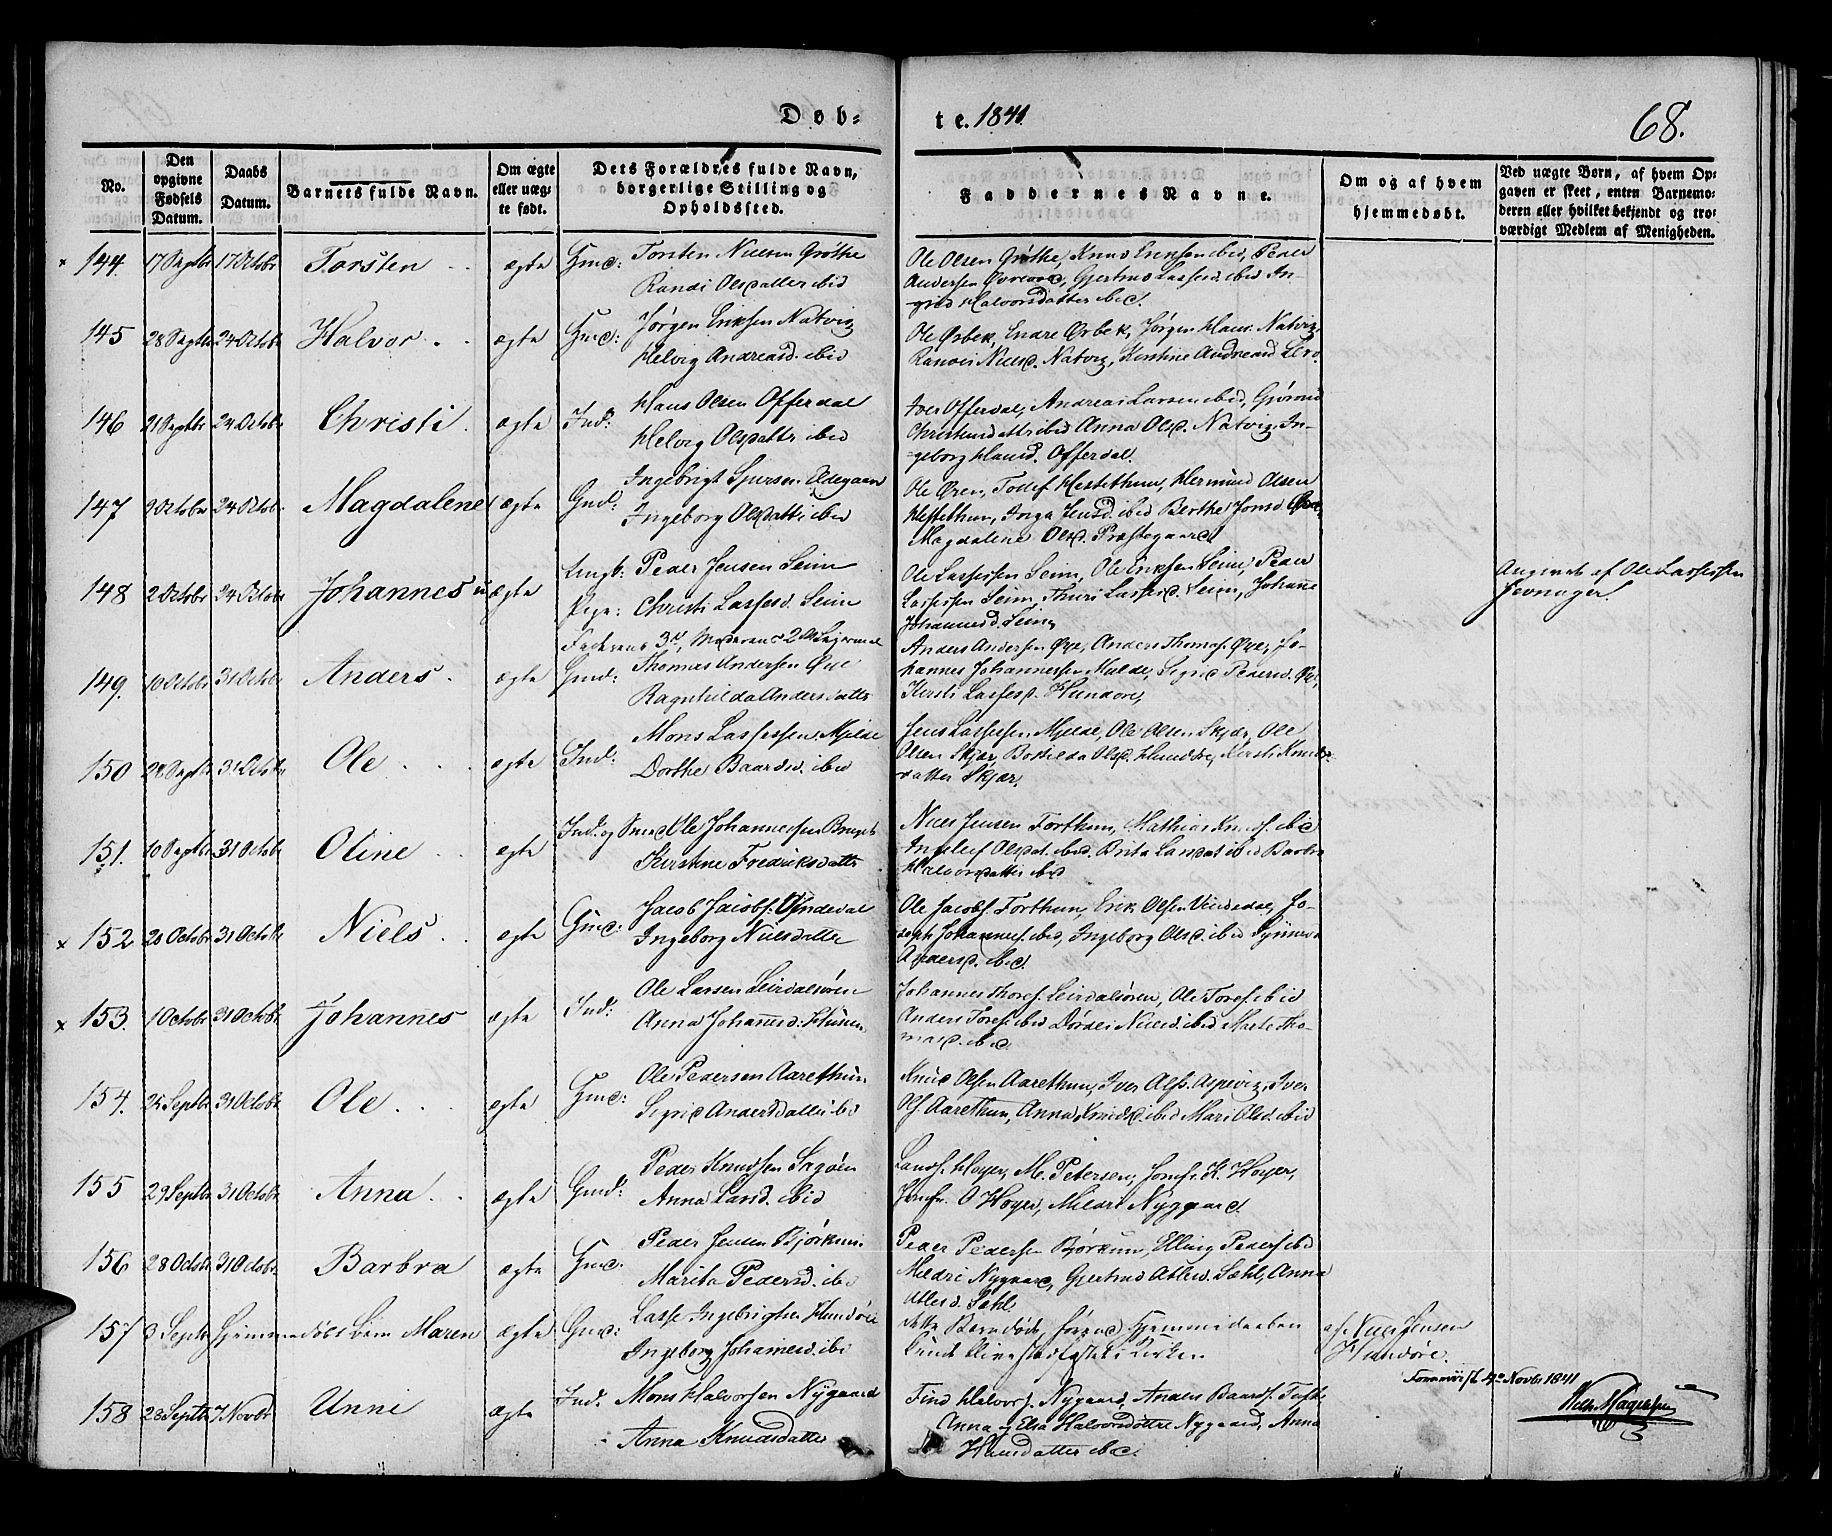 Døb=
te. 1841
68.
No.
Den opgivne Fødsels Datum.
Daabs Datum.
Barnets fulde Navn.
Om ægte eller uæg= te født.
Dets Forældres fulde Navn, borgerlige Stilling og Opholdssted.
Faddernes Navne.
Om og af hvem hjemmedøbt.
Ved uægte Børn, af hvem Op= gaven er skeet, enten Barnemo= deren eller hvilket bekjendt og tro= værdigt Medlem af Menigheden.
144. 17 Septbr 17 Octobr Torsten ægte Gmd: Torsten Nielsen Grøthe
Randi Olsdatter ibid
Ole Olsen Grøthe, Knud Eriksen ibid, Peder
Andersen, Gjertrud Lassesd ibid In-
grid Halvorsdatter ibid.
145 28 Septbr 24 Octobr Halvor ægte Gmd: Jørgen Eriksen Natvig
Helvig Andreasd. ibid
Ole Ørbek, Endre Ørbek, Jørgen Hans. Natvig,
Ranvei Nielsd. Natvig, Kirstine Andreasd
146 21 Septbr 24 Octobr Christi ægte Ind: Hans Olsen Offerdal
Helvig Olsdattr ibid
Iver Offerdal, Andreas Larsen ibid, Gjørond
Christensdattr ibid Anna Olsd. Natvig In-
geborg Hansd. Offerdal.
147 9 October 24 Octobr Magdalene ægte Gmd: Ingebrigt
Ingeborg Olsdattr ibid
Ole Øren, Tollef Hestethun, Hermund Olsen
Hestethun, Inga Jensd. ibid Berthe Jonsd
Magdalene Olsd. Præstegaard
148 2 Octobr 24 Octobr Johannes uægte Ungk: Peder Jensen Seim
Pige: Christi Lassesd. Seim
Faderens 3d, Moderens 2d Leiermaal
Ole Lassessen Seim, Ole Eriksen Seim, Peder
Lassessen Seim, Thuri Lassesd. Seim, Johanne
Johannesd. Seim
Angivet af Ole Lassessen
149. 10 Octobr 31 Octobr Anders ægte Gmd: Thomas Andersen Øve
Ragnhilda Andersdattr
Anders Andersen Øve, Anders Thomas. Øve, Jo-
hannes Johannessen, Sigrid Pedersd. Øve,
Kersti Lassesd. Hundere,
150 28 Septbr 31 Octobr Ole ægte Ind: Mons Lassessen Mjelde
Dorthe Baardsd. ibid
Jens Lassessen Mjelde, Ole Olsen Skjær, Ole
Olsen Skjær, Botilda Olsd. Hundere, Kersti Knuds-
datter Skjær.
151. 10 Septbr 31 Octobr Oline ægte Ind: og Smed Ole Johannessen
Kirstine Fredriksdattr
Niels Jensen Forthun, Mathias Knudsf. ibid
Ingleif Olsdat. ibid. Brita Larsdat ibid Barbro
Halvorsdatter ibid
152 20 Octobr 31 Octobr Niels ægte Gmd: Jacob Jacobs.
Ingeborg Nielsdattr
Ole Jacobs. Forthun, Erik Olsen, Jo-
seph Johannesf. ibid, Ingeborg Olsd. ibid Synneva
ibid.
153. 1 Octobr 31 Octobr Johannes ægte Ind: Ole Larsen Leirdalsøren
Anna Johannsd:
Johannes Thoresf. Leirdalsøren, Ole Toresf. ibid
Anders Toresf. ibid Dordei Nielsd. ibid Marte Tho-
masd. ibid.
154. 25 Septbr 31 Octobr Ole ægte Gmd: Ole Pedersen Aarethun
Sigrid Andersdattr ibid
Knud Olsen Aarethun, Iver Olss. Aspevig, Iver
Olf. Aarethun, Anna Knudsd ibid Mari Olsd. ibid
155 29 Septbr 31 Octobr Anna ægte Gmd: Peder Knudsen
Anna Larsd. ibid
Høyer, M. Petersen, Jomfr. K. Høyer,
Jomfr. O Høyer, Mildri Nygaard.
156 28 Octobr 31 Octobr Barbra ægte Gmd: Peder Jensen Bjørkum
Marita Pedersd. ibid
Peder Pedersen Bjørkum, Elling Pedersf. ibid
Mildri Nygaard, Gjertrud Atlesd. Sæhl, Anna
Atlesd. Sæhl.
157 3 Septbr Hjemmedøbt Maren ægte Gmd: Lasse Ingebrigtsen Hundere
Ingeborg Johannesd. ibid
dette Barn døde, førend Hjemmedaaben
kunde blive stadfæstet i Kirken
af Niels Jensen
Hundere.
158 28 Septbr 7 Novbr Unni ægte Ind: Mons Halvorsen Nygaard
Anna Knudsdatter
Find Halvors. Nygaard, Anders Baards.
Anna og Elsa Halvorsdøttre Nygaard, Anna
Hansdatter ibid.
4de Novbr 1841